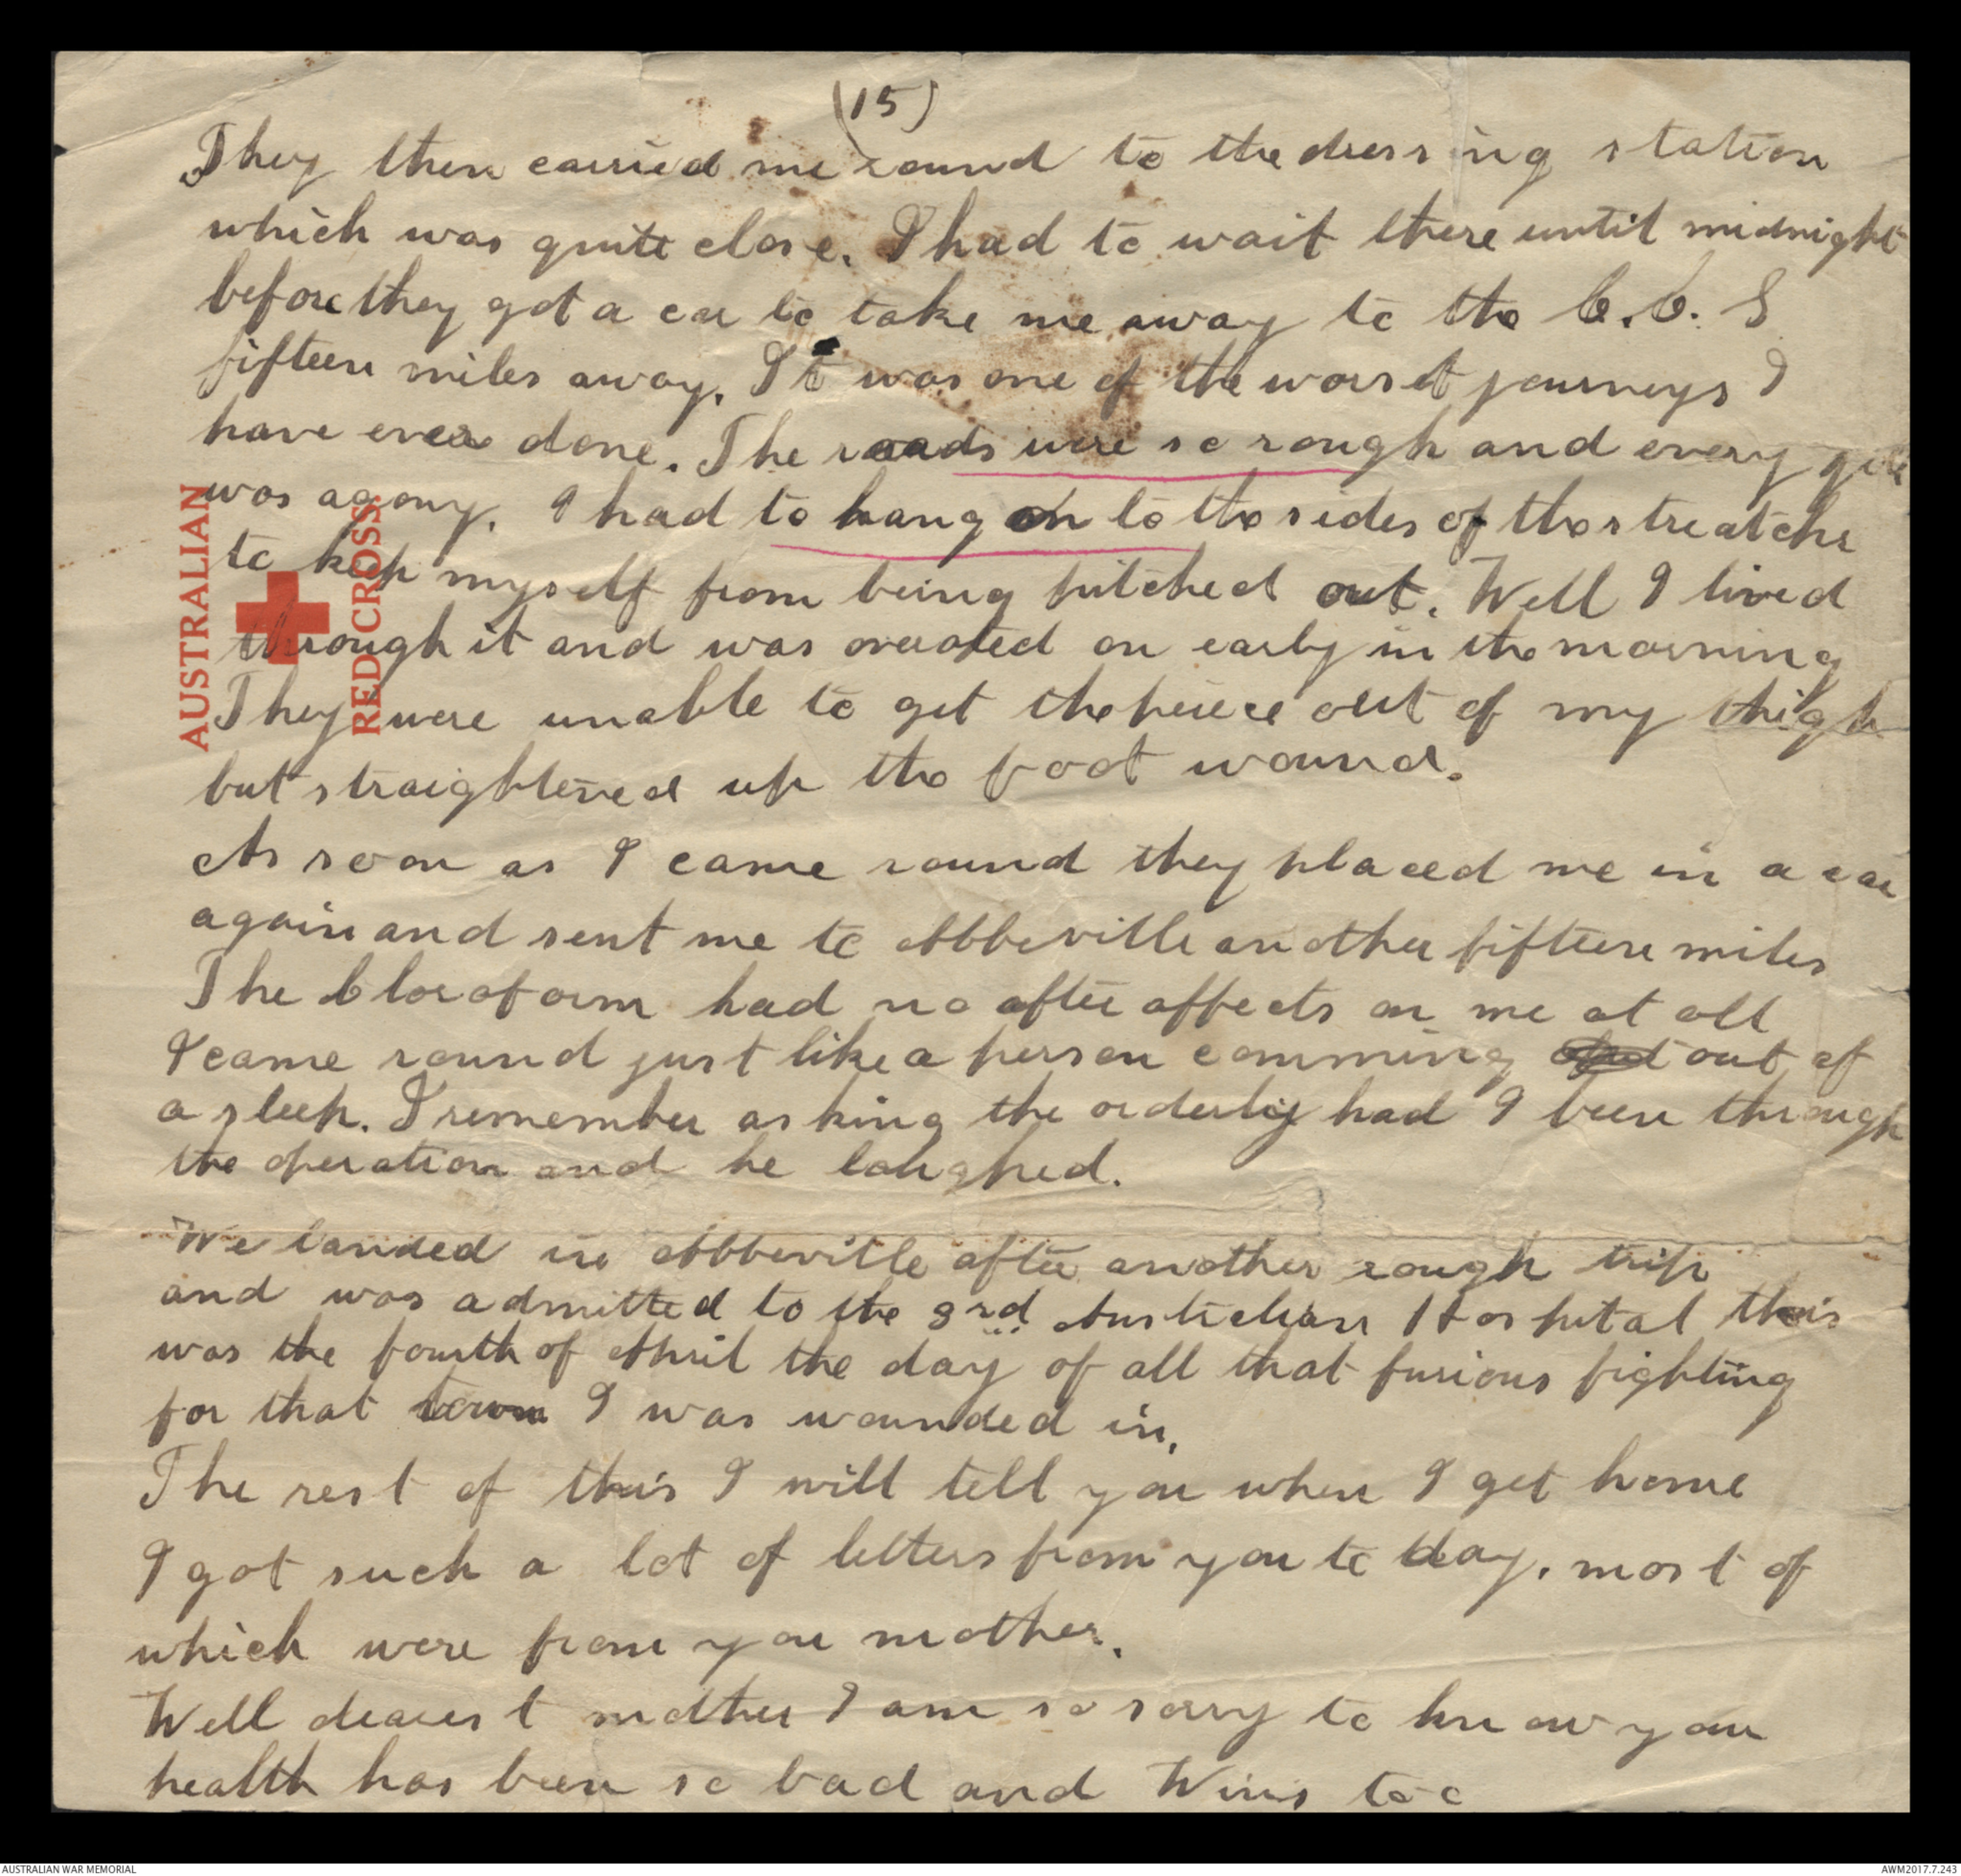 (15)
They then carried me round to the dressing station
which was quite close. I had to wait there until midnight
before they got a car to take me away to the C.C.S
fifteen miles away. It was one of the worst journeys I
have ever done. The roads were so rough and every
was agony. I had to hang on to the sides of the streatche
to keep myself from being pitched out. Well I lived
through it and was operated on early in the morning
They were unable to get the peiece out of my thigh
but straightened up the foot wound.
As soon as I came round they placed me in a car
again and sent me to Abbeville another fifteen miles
The Cloroform had no after affects on me at all
I came round just like a person comming out of
a sleep. I remember asking the orderly had I been through
the operation and he laughed.
We landed in Abbeville after another rough trip
and was admitted to the 3rd Australian Hospital this
was the fourth of April the day of all that furious fighting
for that town I was wounded in.
The rest of this I will tell you when I get home
I got such a lot of letters from you to day. most of
which were from you mother.
Well dearest mother I am so sorry to know you
health has been so bad and Wins too
AUSTRALIAN
RED CROSS
AUSTRALIAN WAR MEMORIAL
AWM2017.7.243